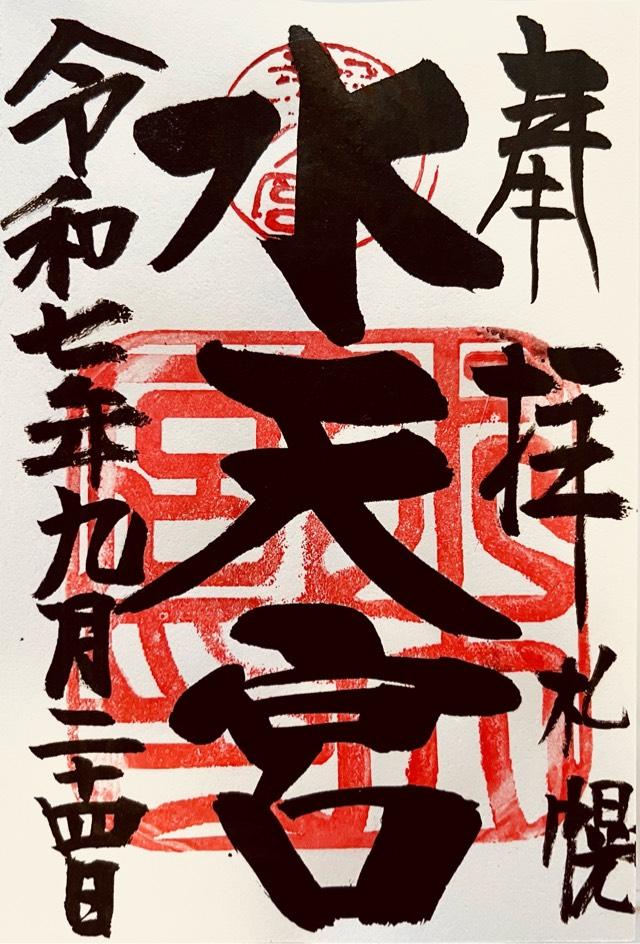 奉拝
札幌
水天宮
令和七年九月二十四日